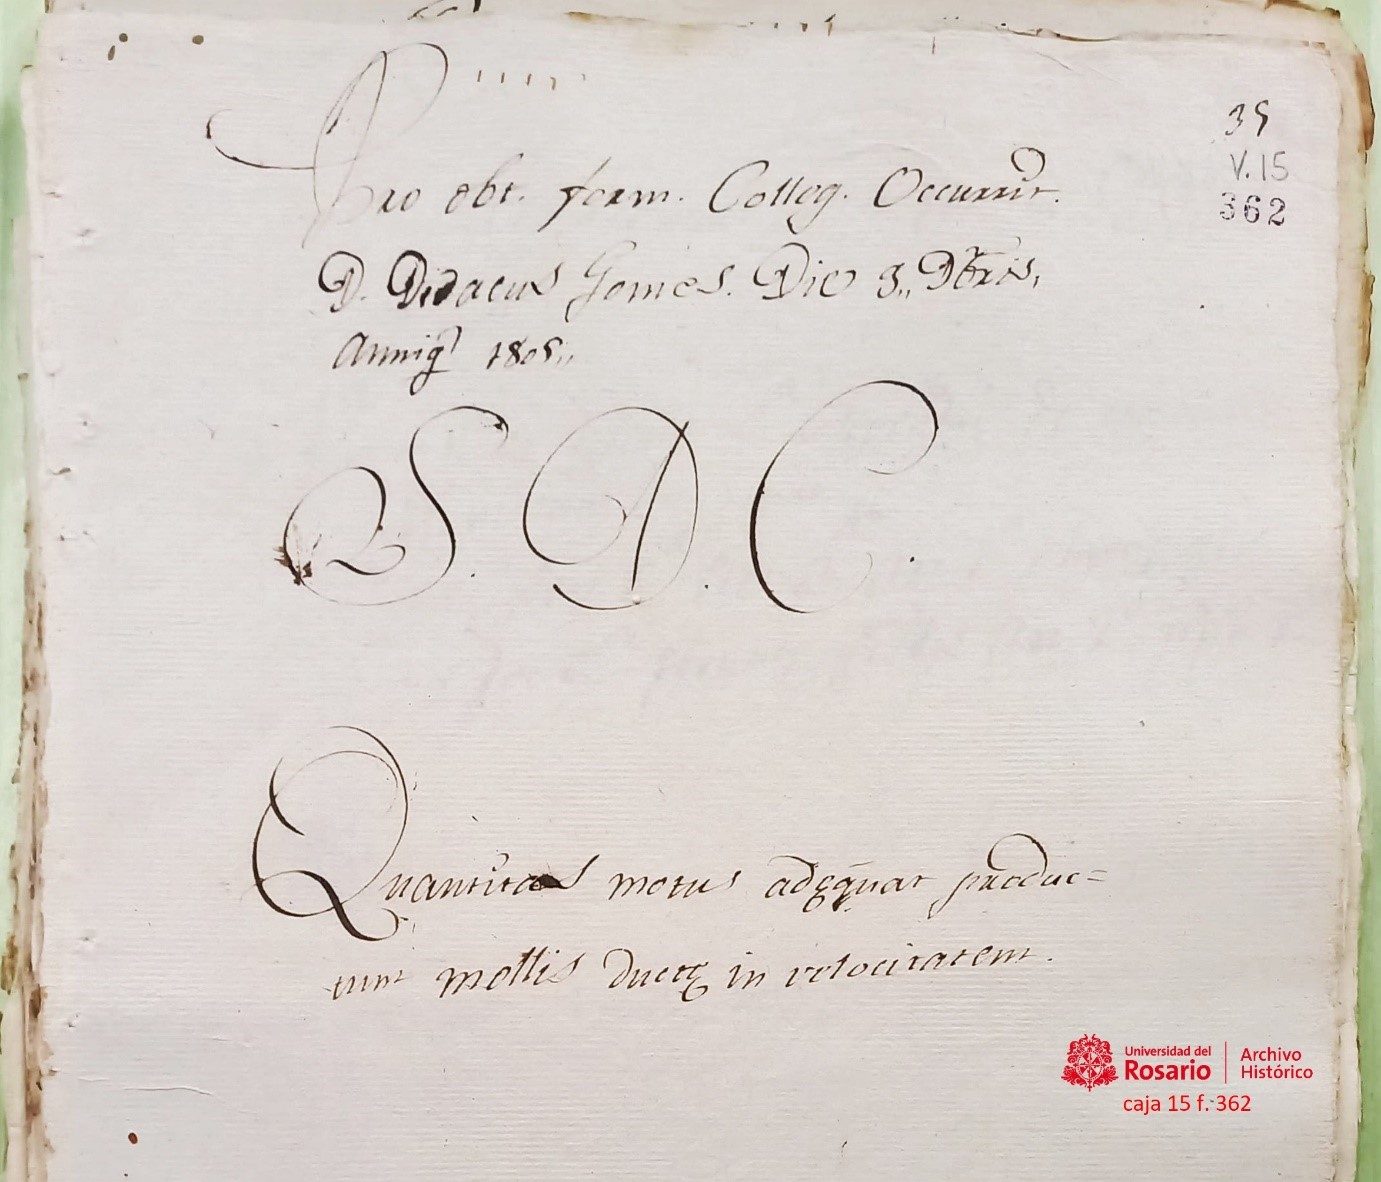 35
V.15
362
Pro obt. form. Colleg. Occurrit.
D. Didacus Gomes. Die 3,, Dbris,
Anniq 1805,,
S. D. C.
Quantitas motus adęquat produc=
tum mollis ductę in velocitatem.
Universidad del Rosario
Archivo Histórico
caja 15 f. 362